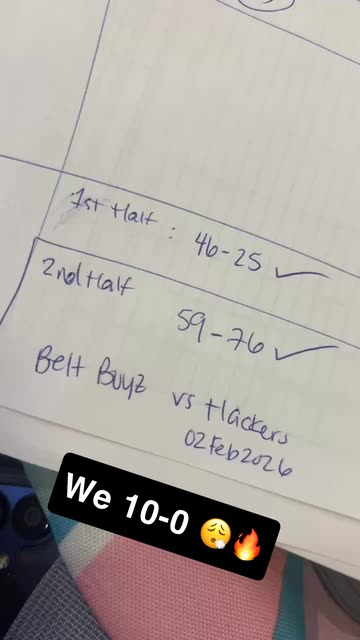 1st Half : 46-25 ✓
2nd Half 59-76 ✓
Belt Buyz vs Hackers
02Feb2026
We 10-0 😮‍💨🔥